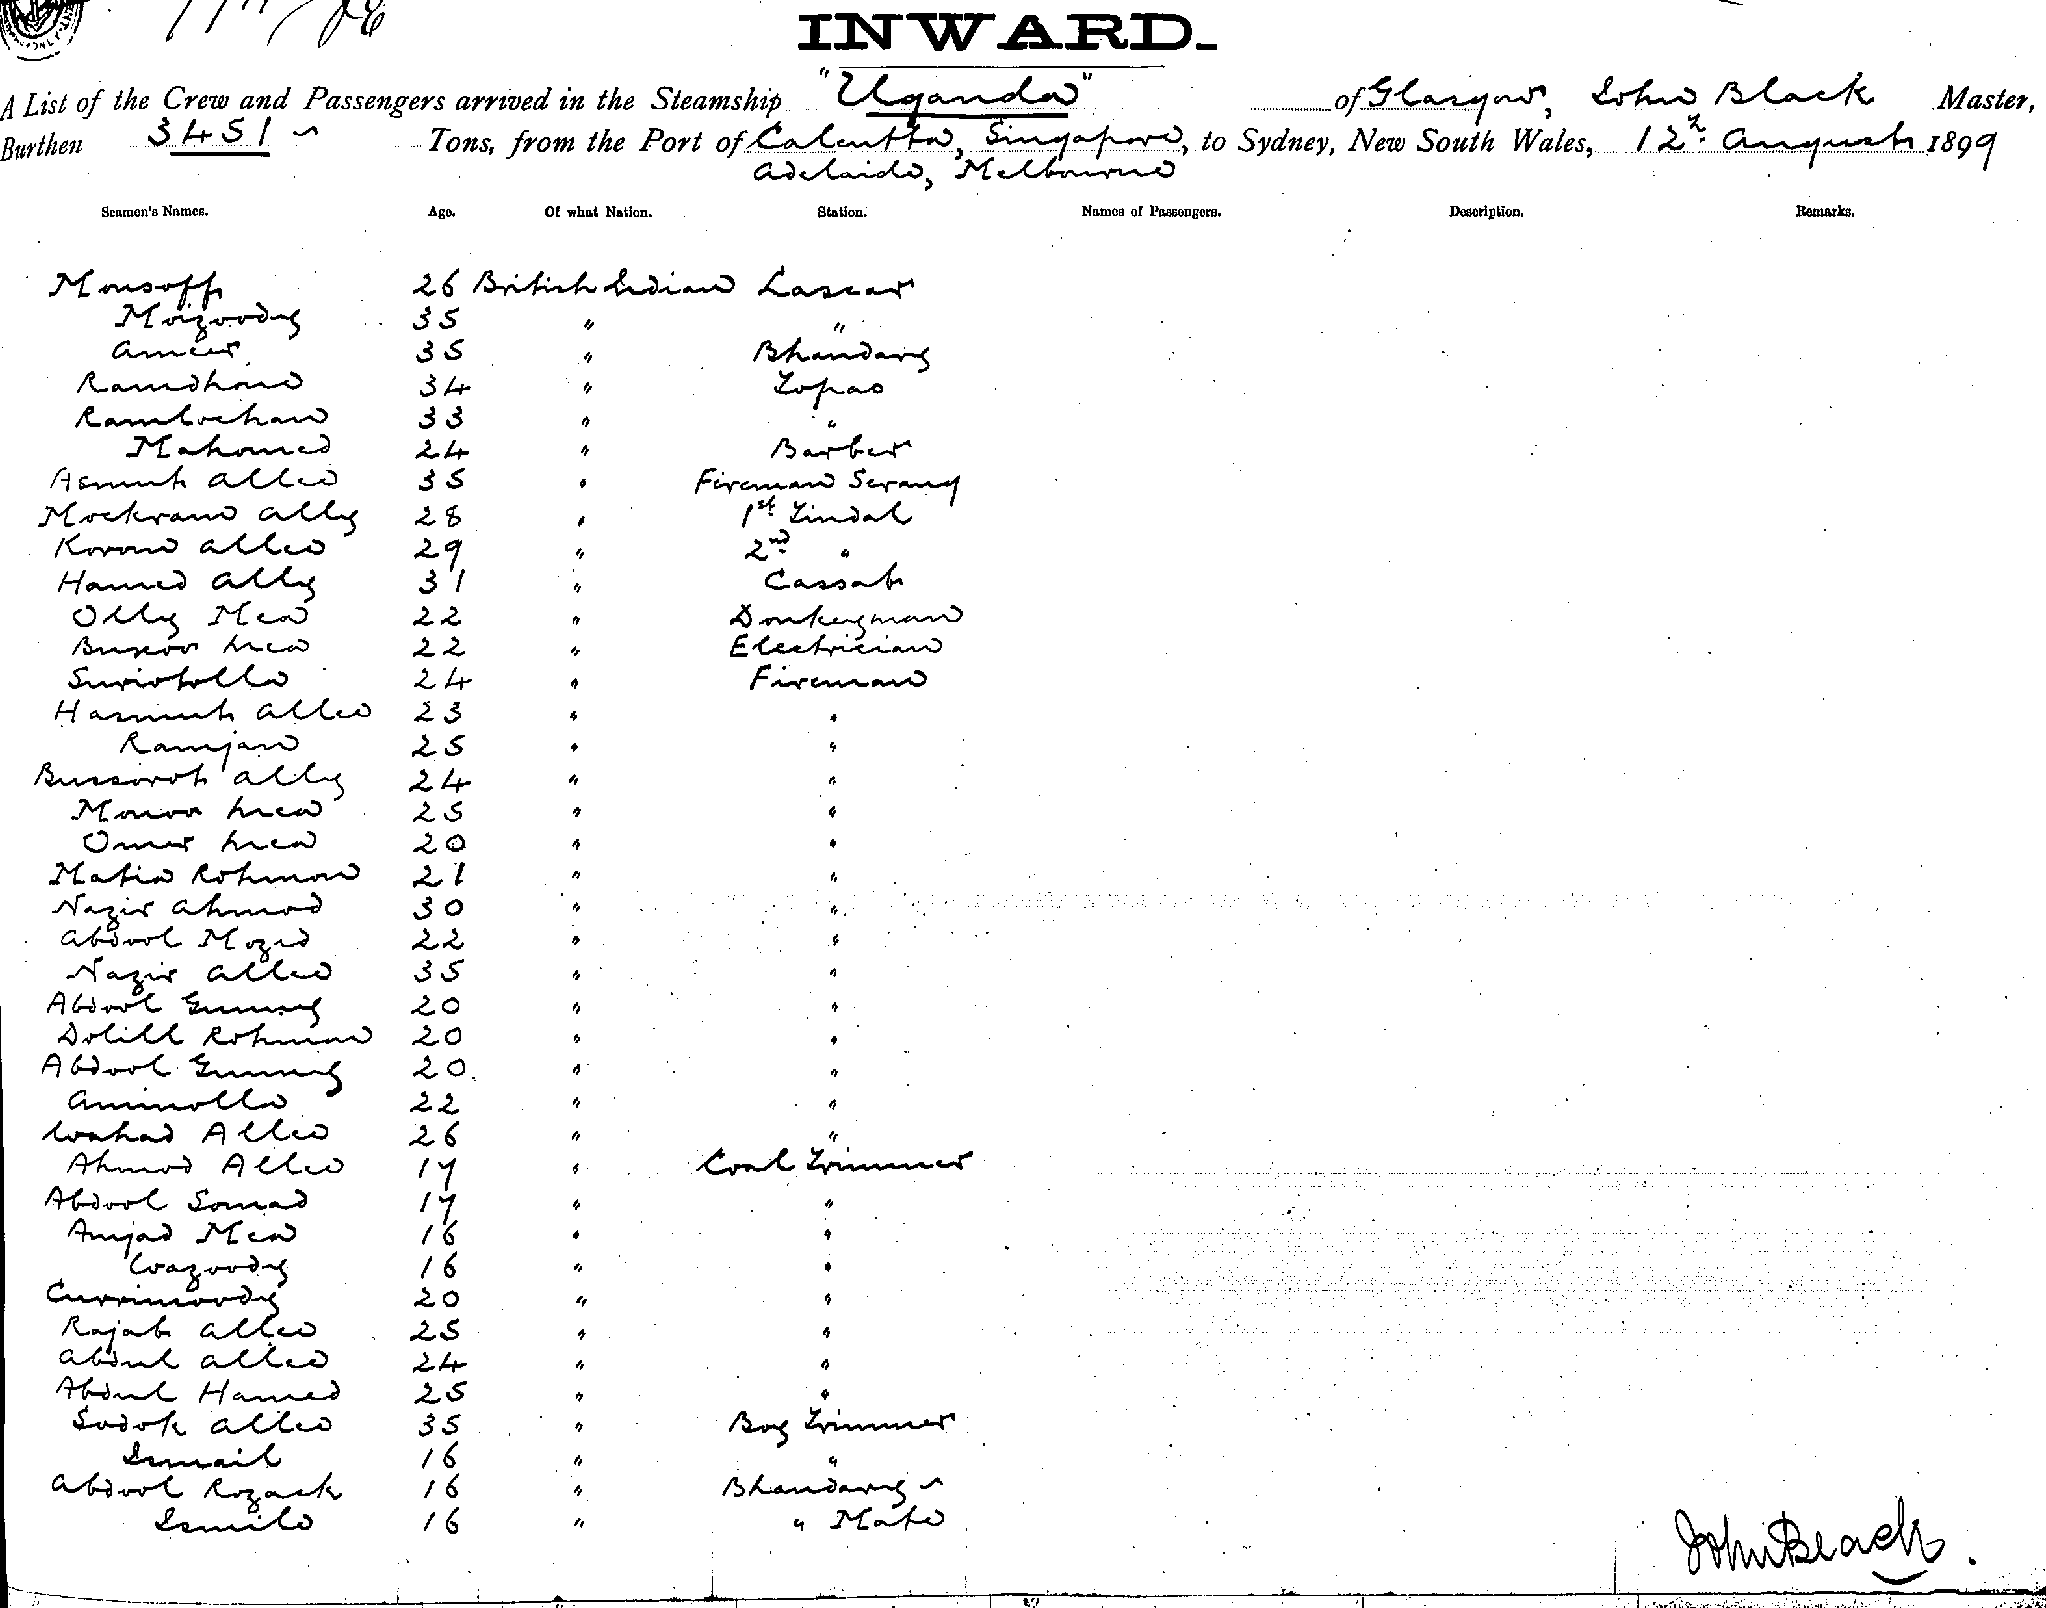 INWARD.
A List of the Crew and Passengers arrived in the Steamship "Uganda" of Glasgow, John Black Master,
Burthen 3451 Tons, from the Port of Calcutta, Singapore, to Sydney, New South Wales, 12th August 1899
Adelaide, Melbourne
Seamen's Names. Age. Of what Nation. Station. Names of Passengers. Description. Remarks.
Monsoff 26 British Indian Lascar
Moizoody 35 " "
Ameer 35 " Bhandary
Ramdhone 34 " Topas
Ramlochan 33 " "
Mahomed 24 " Barber
Asmut Allee 35 " Fireman Serang
Mockram Ally 28 " 1st Tindal
Korom Allee 29 " 2nd "
Hamed Ally 31 " Cassab
Olly Mea 22 " Donkeyman
Buxoo Mea 22 " Electrician
Suriotolla 24 " Fireman
Hasmut Allee 23 " "
Ramjan 25 " "
Bussorot Ally 24 " "
Monoo Mea 25 " "
Omer Mea 20 " "
Matio Rohmon 21 " "
Nazir Ahmod 30 " "
Abdool Mozid 22 " "
Nazir Allee 35 " "
Abdool Gunny 20 " "
Dolill Rohman 20 " "
Abdool Gunny 20 " "
Aminolla 22 " "
Wahad Allee 26 " "
Ahmod Allee 17 " Coal Trimmer
Abdool Somad 17 " "
Amjad Mea 16 " "
Wazoody 16 " "
Currimoody 20 " "
Rajab Allee 25 " "
Abdul Allee 24 " "
Abdul Hamed 25 " "
Sodok Allee 35 " Boy Trimmer
Ismail 16 " "
Abdool Rozack 16 " Bhandary
Ismile 16 " " Mate
John Black.